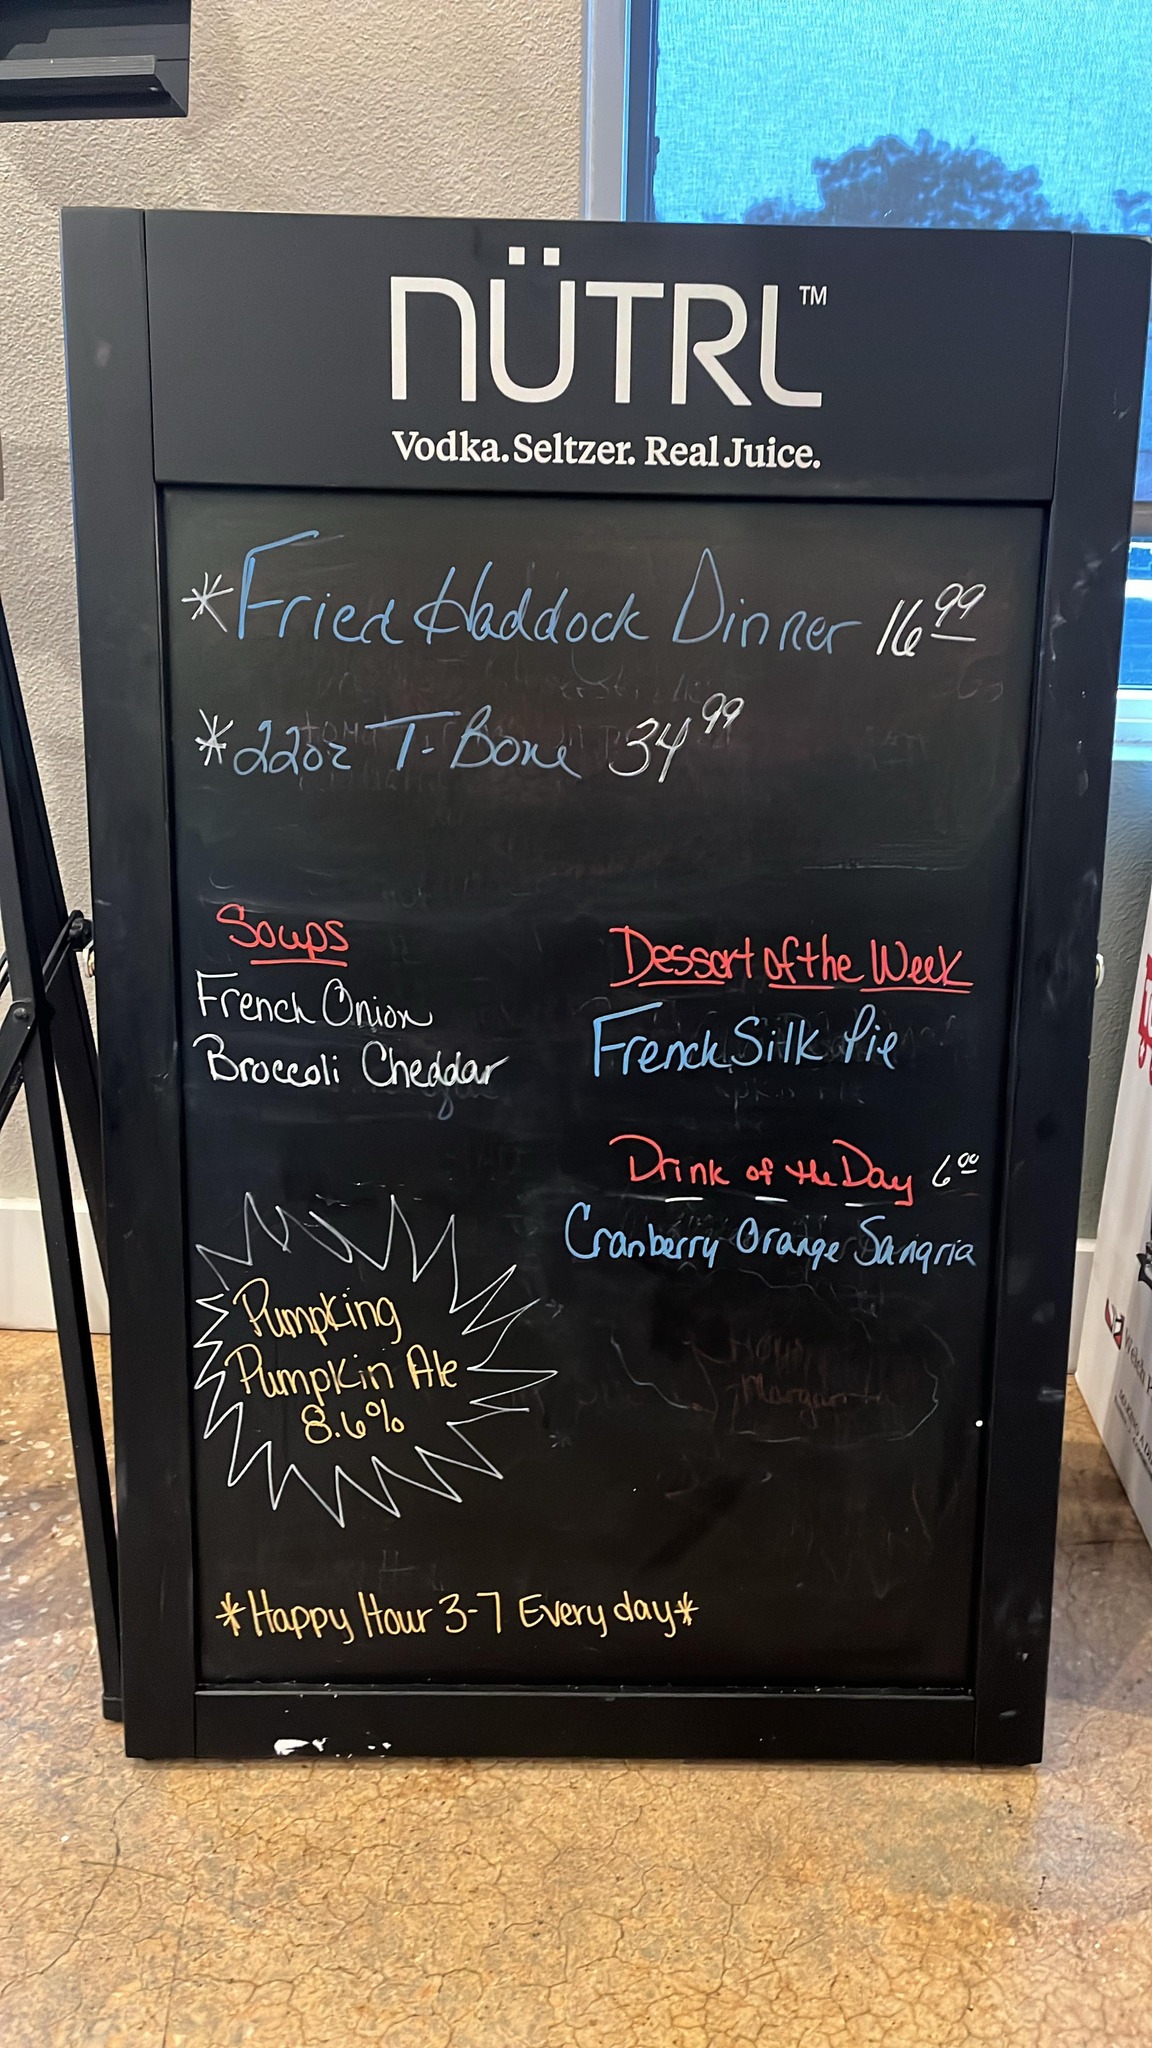 NÜTRL™
Vodka. Seltzer. Real Juice.
*Fried Haddock Dinner 16.99
*22oz T-Bone 34.99
Soups
French Onion
Broccoli Cheddar
Dessert of the Week
French Silk Pie
Drink of the Day 6.00
Cranberry Orange Sangria
Pumpking
Pumpkin Ale
8.6%
*Happy Hour 3-7 Every day*